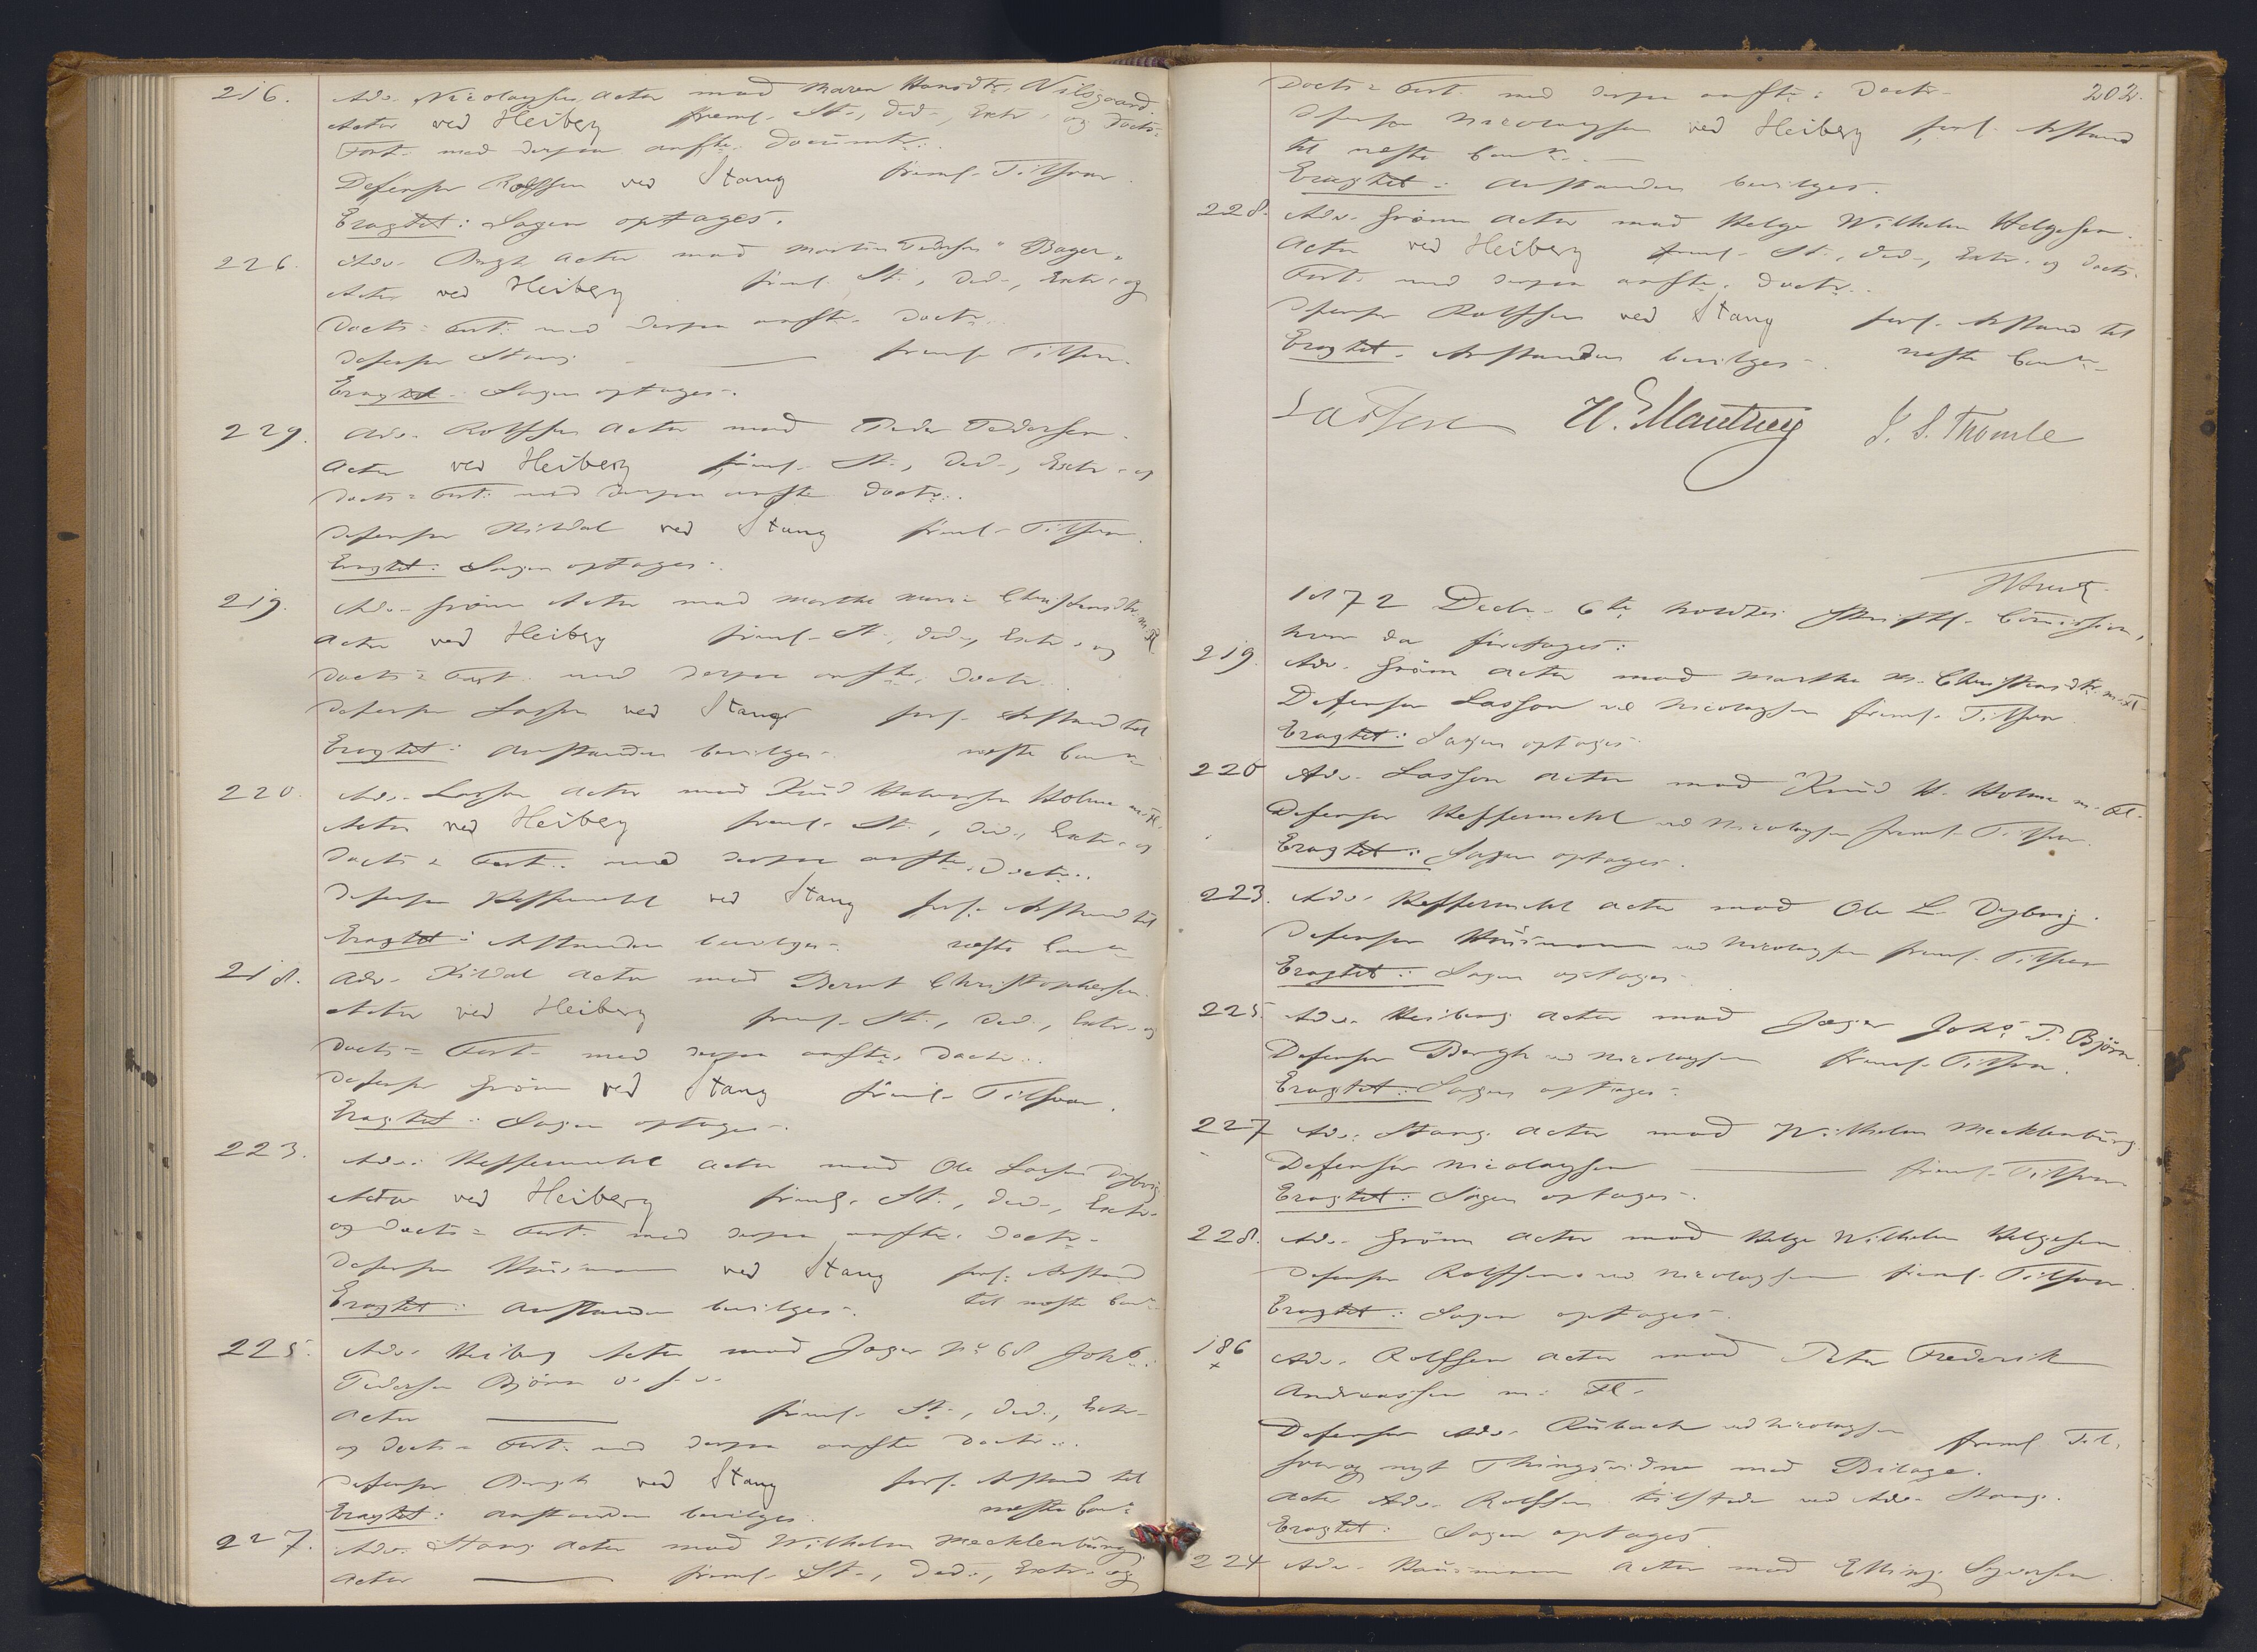 216. Adv. Nicolaysen Actor mod Maren Hansdtr. Nilsgaard
Actor ved Heiberg freml. St-, Ded-, Extr- og Docts-
Fort. med derpaa anførte Documtr.
Defensor Rolfsen ved Stang freml. Tilsvar.
Eragtet: Sagen optages.
226. Adv. Bergh Actor mod Martin Pedersen "Bager"
Actor ved Heiberg freml. St-, Ded-, Extr- og
Docts- Fort. med derpaa anførte Doctr.
Defensor Stang — freml. Tilsvar.
Eragtet: Sagen optages.
229. Adv. Rolfsen Actor mod Peder Pedersen.
Actor ved Heiberg freml. St-, Ded-, Extr- og
Docts- Fort. med derpaa anførte Doctr.
Defensor Kildal ved Stang freml. Tilsvar.
Eragtet: Sagen optages.
219. Adv. Grönn Actor mod Marthe Marie Christensdtr. m. Fl.
Actor ved Heiberg freml. St-, Ded-, Extr- og
Docts- Fort. med derpaa anførte Doctr.
Defensor Lasson ved Stang forl. Anstand til
Eragtet: Anstanden bevilges. næste
220. Adv. Lasson Actor mod Knud Halvorsen Holme m. Fl.
Actor ved Heiberg freml. St-, Ded-, Extr- og
Docts- Fort. med derpaa anførte Doctr.
Defensor Heffermehl ved Stang forl. Anstand til
Eragtet: Anstanden bevilges. næste
218. Adv. Kildal Actor mod Bernt Christophersen.
Actor ved Heiberg freml. St-, Ded-, Extr- og
Docts- Fort. med derpaa anførte Doctr.
Defensor Grönn ved Stang freml. Tilsvar.
Eragtet: Sagen optages.
223. Adv. Heffermehl Actor mod Ole Larsen Dybvig
Actor ved Heiberg freml. St-, Ded-, Extr-
og Docts- Fort. med derpaa anførte Doctr.
Defensor Hansmann ved Stang forl. Anstand
Eragtet: Anstanden bevilges. til næste
225. Adv. Heiberg Actor mod Jæger No 68 Johs.
Pedersen Björn o. s. v.
Actor — freml. St-, Ded-, Extr-
og Docts- Fort. med derpaa anførte Doctr.
Defensor Bergh ved Stang forl. Anstand til
Eragtet: Anstanden bevilges. næste
227. Adv. Stang Actor mod Wilhelm Mecklenburg.
Actor — freml. St-, Ded-, Extr- og
202.
Docts- Fort. med derpaa anførte Doctr.
Defensor Nicolaysen ved Heiberg forl. Anstand
til næste
Eragtet: Anstanden bevilges.
228. Adv. Grönn Actor mod Helge Wilhelm Helgesen.
Actor ved Heiberg freml. St-, Ded-, Extr- og Docts-
Fort. med derpaa anførte Doctr.
Defensor Rolfsen ved Stang forl. Anstand til
Eragtet. Anstanden bevilges. næste
Lasson U. E. Manthey J. S. Thomle
1872 Decbr. 6te holdtes skriftl. Comission,
hvor da foretages:
219. Adv. Grönn Actor mod Marthe M. Christensdtr. m. Fl.
Defensor Lasson ved Nicolaysen freml. Tilsvar.
Eragtet: Sagen optages.
220 Adv. Lasson Actor mod Knud H. Holme m. Fl.
Defensor Heffermehl ved Nicolaysen freml. Tilsvar.
Eragtet: Sagen optages.
223. Adv. Heffermehl Actor mod Ole L. Dybvig.
Defensor Hansmann ved Nicolaysen freml. Tilsvar
Eragtet: Sagen optages.
225. Adv. Heiberg Actor mod Jæger Johs. P. Björn.
Defensor Bergh ved Nicolaysen freml. Tilsvar.
Eragtet: Sagen optages.
227 Adv. Stang Actor mod Wilhelm Mecklenburg
Defensor Nicolaysen — freml. Tilsvar
Eragtet: Sagen optages.
228. Adv. Grönn Actor mod Helge Wilhelm Helgesen
Defensor Rolfsen ved Nicolaysen freml. Tilsvar.
Eragtet: Sagen optages.
186 Adv. Rolfsen Actor mod Peter Frederik
Andreassen m. Fl.
Defensor Adv. Rubach ved Nicolaysen freml. Til-
svar og nyt Thingsvidne med Bilage.
Actor Adv. Rolfsen tilstede ved Adv. Stang.
Eragtet: Sagen optages
224 Adv. Hansmann Actor mod Elling Syversen.